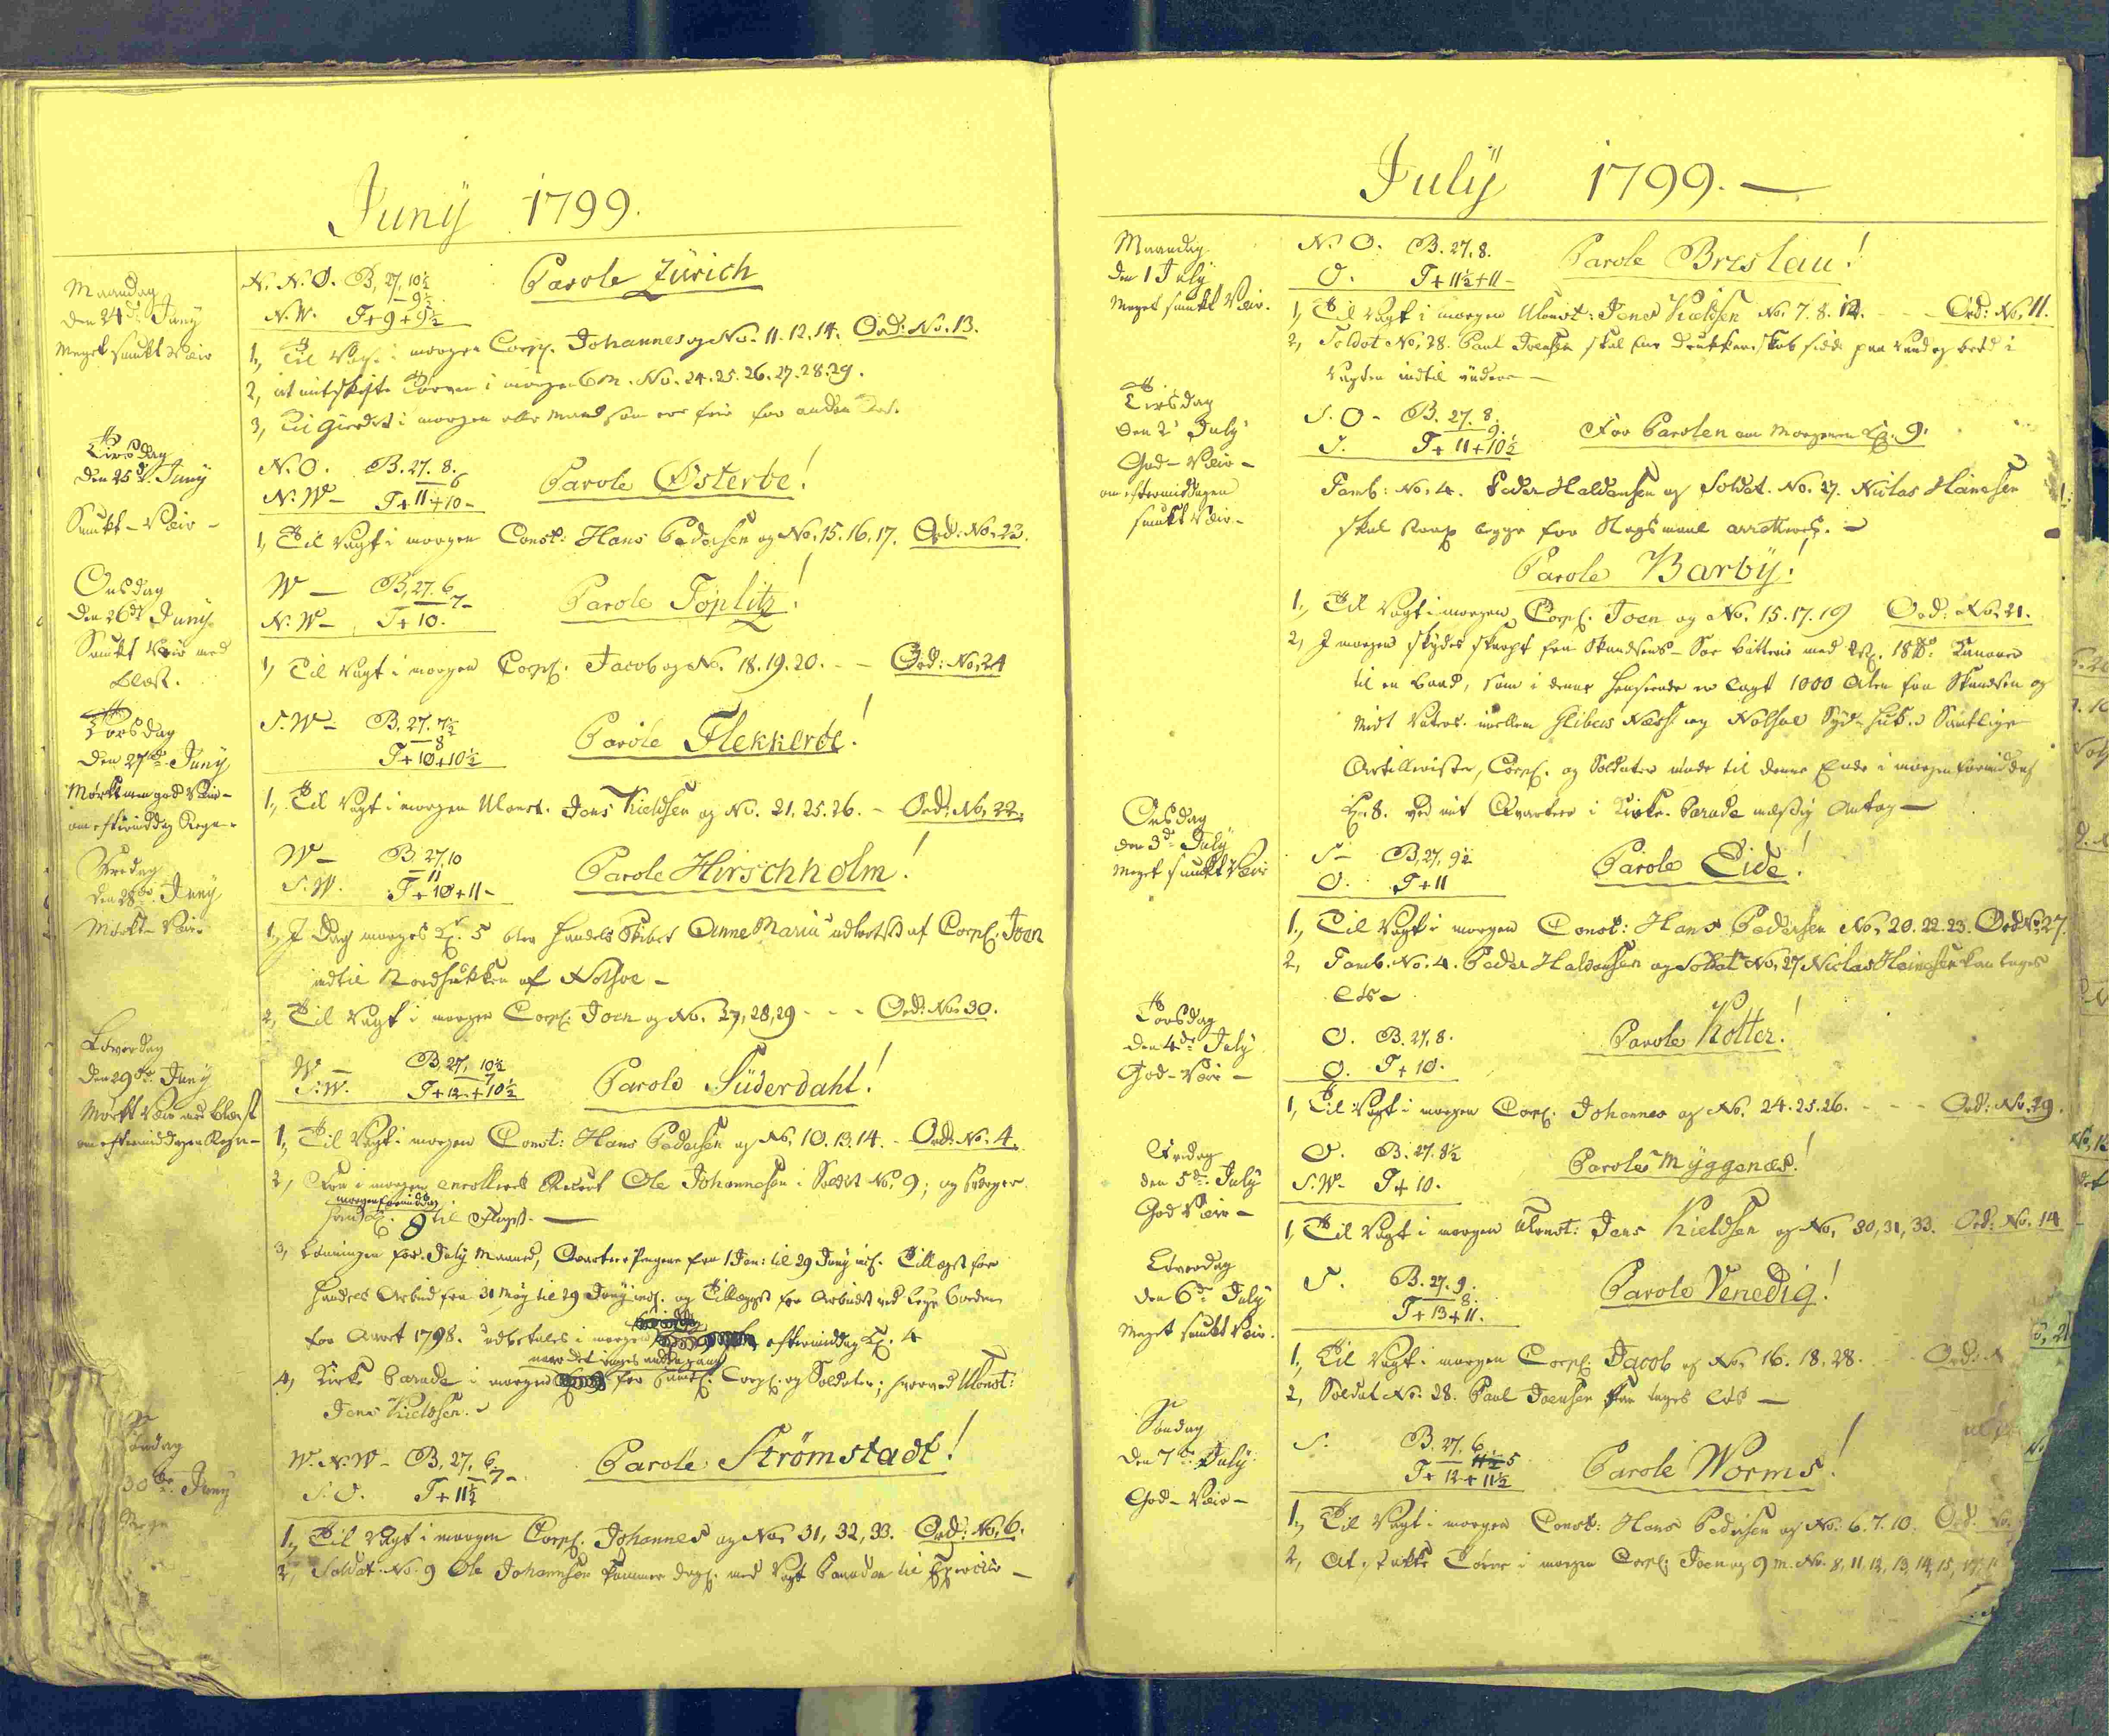 Juny 1799.
Maandag
den 24de Juny
Meget smukt Veir
N. N. O. B. 27, 10½
— 9½
N. W. T+ 9 + 9½
Parole Zürich
1, Til Vagt i morgen Corpl. Johannes og No. 11. 12. 14. Ord: No. 13.
2, at udskifte Tørven i morgen 6 M. No. 24. 25. 26. 27. 28. 29.
3, Til Gierdet i morgen alle Mand som ere frie for anden
Tirsdag
den 25de Juny
Smukt - Veir -
N. O. B. 27. 8.
— 6
N. W — T+ 11 + 10 -
Parole Østerbe!
1, Til Vagt i morgen Const: Hans Pedersen og No. 15. 16. 17. Ord: No. 23.
Onsdag
den 26de Juny
Smukt Veir med
blæst.
W — B. 27. 6
— 7 -
N. W — T+ 10.
Parole Töplitz!
1, Til Vagt i morgen Corpl. Jacob og No. 18. 19. 20. - - Ord: No. 24
Torsdag
den 27de Juny
Mørkt men god Veir -
om eftermiddag Regn -
S. W — B. 27. 7½
— 8
T+ 10 + 10½
Parole Flekkerøe!
1, Til Vagt i morgen Uconst. Jens Kieldsen og No. 21. 25. 26. - Ord: No. 22.
Fredag
den 28de Juny
Mørkt - Veir
W — B. 27. 10
— 11
S. W. T+ 10 + 11 -
Parole Hirschholm!
1, I Dag morges Kl. 5 blev Handels Skibet Anne Maria udlootset af Corpl. Joen
indtil Nordhukken af Nolsøe -
2, Til Vagt i morgen Corpl. Joen og No. 27, 28, 29 - - - Ord: No. 30.
Løverdag
den 29de Juny
Mørkt Veir med blæst
om eftermiddagen Regn -
W — B. 27, 10½
— 7
S. W. T+ 12 + 10½
Parole Süderdahl!
1, Til Vagt i morgen Const: Hans Pedersen og No. 10. 13. 14. - Ord: No. 4.
2, For i morgen enrolleres Recrut Ole Johannesen i Sted No. 9; og
morgenformiddag
Kl. 8 til
3, Lønningen for July Maaned, Qvarteer Penge fra 1 Jan: til 29 Juny incl. Tillægget for
Handels Arbeid fra 31 May til 29 Juny incl. og Tillægget for Arbeidet ved
for Aaret 1798. udbetales i morgen eftermiddag Kl. 4
naar det ringes anden gang
4, Kirke Parade i morgen for Corpl. og Soldater; hvorved Uconst:
Jens Kieldsen.
Søndag
30de Juny
Mege
W. N. W — B. 27. 6
— 7 -
S. O. T+ 11½
Parole Strømstadt!
1, Til Vagt i morgen Corpl. Johannes og No. 31, 32, 33. Ord: No. 6.
2, Soldat No. 9 Ole Johannesen kommer dagl. med Vagt Paraden til Exercice -
July 1799. —
Maandag
den 1 July
Meget smukt Veir.
N. O. B. 27. 8.
O. T+ 11½ + 11 -
Parole Breslau!
1, Til Vagt i morgen Uconst: Jens Kieldsen No. 7. 8. 12. - - - Ord: No. 11.
2, Soldat No. 28. Paul Joensen skal for Drukkenskab sidde paa Vand og brød i
Vagten indtil videre —
Tirsdag
den 2de July
God - Veir -
om eftermiddagen
smukt Veir -
S. O - B. 27. 8.
— 9.
S. T+ 11 + 10½
For Parolen om Morgenen Kl. 9.
Tamb: No. 4. Peder Haldansen og Soldat. No. 27. Niclas Hanesen
skal strax begge for Slagsmaal arretteres. -
Parole Barby!
1, Til Vagt i morgen Corpl. Joen og No. 15. 17. 19 Ord: No. 21.
2, I morgen skydes skarpt fra Skandsens - Søe Batterie med 18 pd. Kanoner
til en Baad, som i denne Henseende er lagt 1000 Alen fra Skandsen og
midt Vater. imellem Glibers Næss og Nolsøe Syd-huk. Samtlige
Artillerister, Corpl. og Soldater møde til denne Ende i morgen formiddag
Kl. 8. ved mit Qvarteer i Kirke-Parade mæssig Antog —
Onsdag
den 3de July
Meget smukt Veir
S — B. 27, 9½
O. T+ 11
Parole Eide!
1, Til Vagt i morgen Const: Hans Pedersen No. 20. 22. 23. Ord No. 27.
2, Tamb. No. 4. Peder Haldansen og Soldat No. 27 Niclas Hanesen kan tages
løs -
Torsdag
den 4de July
God - Veir -
O. B. 27. 8.
O. T+ 10.
Parole Kolter!
1, Til Vagt i morgen Corpl. Johannes og No. 24. 25. 26. - - - Ord: No. 29.
Fredag
den 5de July
God Veir -
O. B. 27. 8½
S. W - T+ 10.
Parole Myggenæs!
1, Til Vagt i morgen Uconst: Jens Kieldsen og No. 30, 31, 33. Ord: No. 14
Løverdag
den 6te July
Meget smukt Veir.
S. B. 27. 9.
— 8.
T+ 13 + 11.
Parole Venedig!
1, Til Vagt i morgen Corpl. Jacob og No. 16. 18. 28. - - Ord:
2, Soldat No. 28. Paul Joensen kan tages løs —
Søndag
den 7de July
God - Veir -
S. B. 27. 6
— 5
T+ 12 + 11½
Parole Worms!
1, Til Vagt i morgen Const: Hans Pedersen og No. 6. 7. 10. Ord. No.
2, At stakke Tørv i morgen Corpl. Joen og 9 m. No. 8, 11, 12, 13, 14, 15,